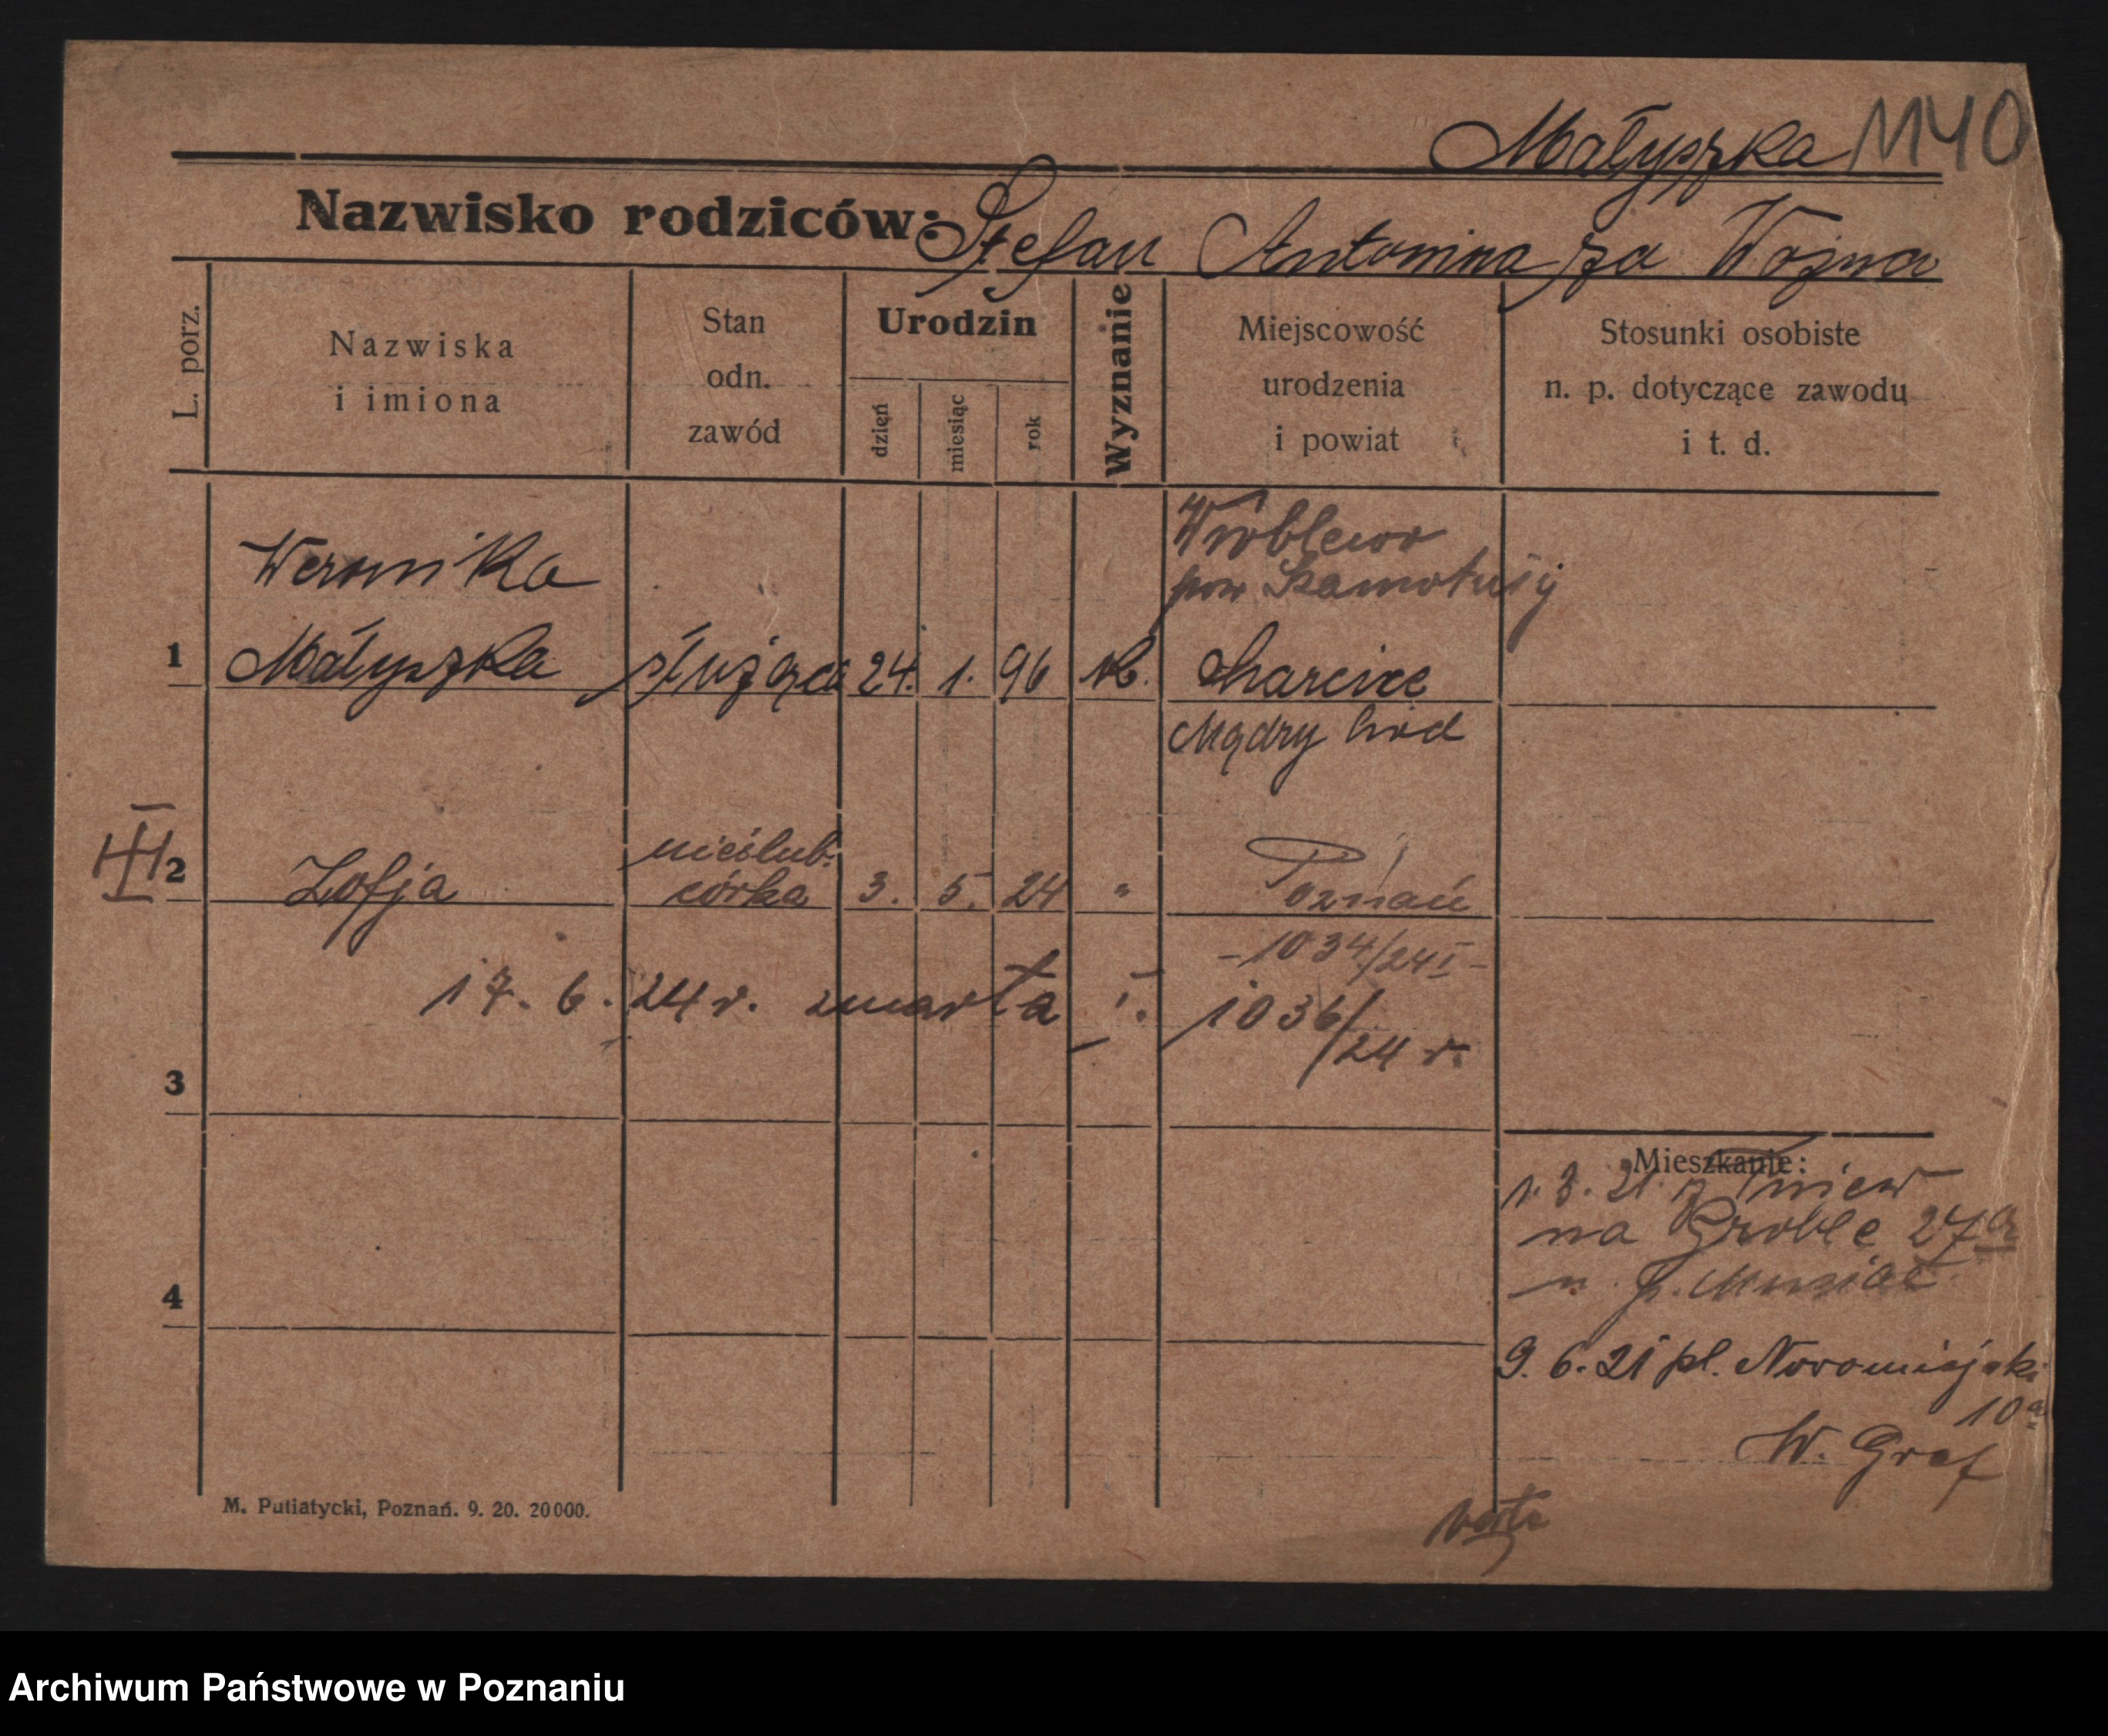 Małyszka M40
Nazwisko rodziców: Stefan Antonina za Wojna
L. porz.
Nazwiska
i imiona
Stan
odn.
zawód
Urodzin
dzień
miesiąc
rok
Wyznanie
Miejscowość
urodzenia
i powiat
Stosunki osobiste
n. p. dotyczące zawodu
i t. d.
Wróblewo
pow Szamotuły
Weronika
1 Małyszka służąca 24. 1. 96 rk. Charcice
Mądry hód
nieślub.
2 Zofja córka 3. 5. 24 " Poznań
-1034/24 I-
17. 6. 24 r. zmarła I. 1036/
24 r.
3
Mieszkanie:
1. 3. 21. z Pniew
na Groble 27a
u p. Musiał
4
9. 6. 21 pl. Nowomiejski
10a
W. Graf
M. Putiatycki, Poznań. 9. 20. 20000.
Archiwum Państwowe w Poznaniu